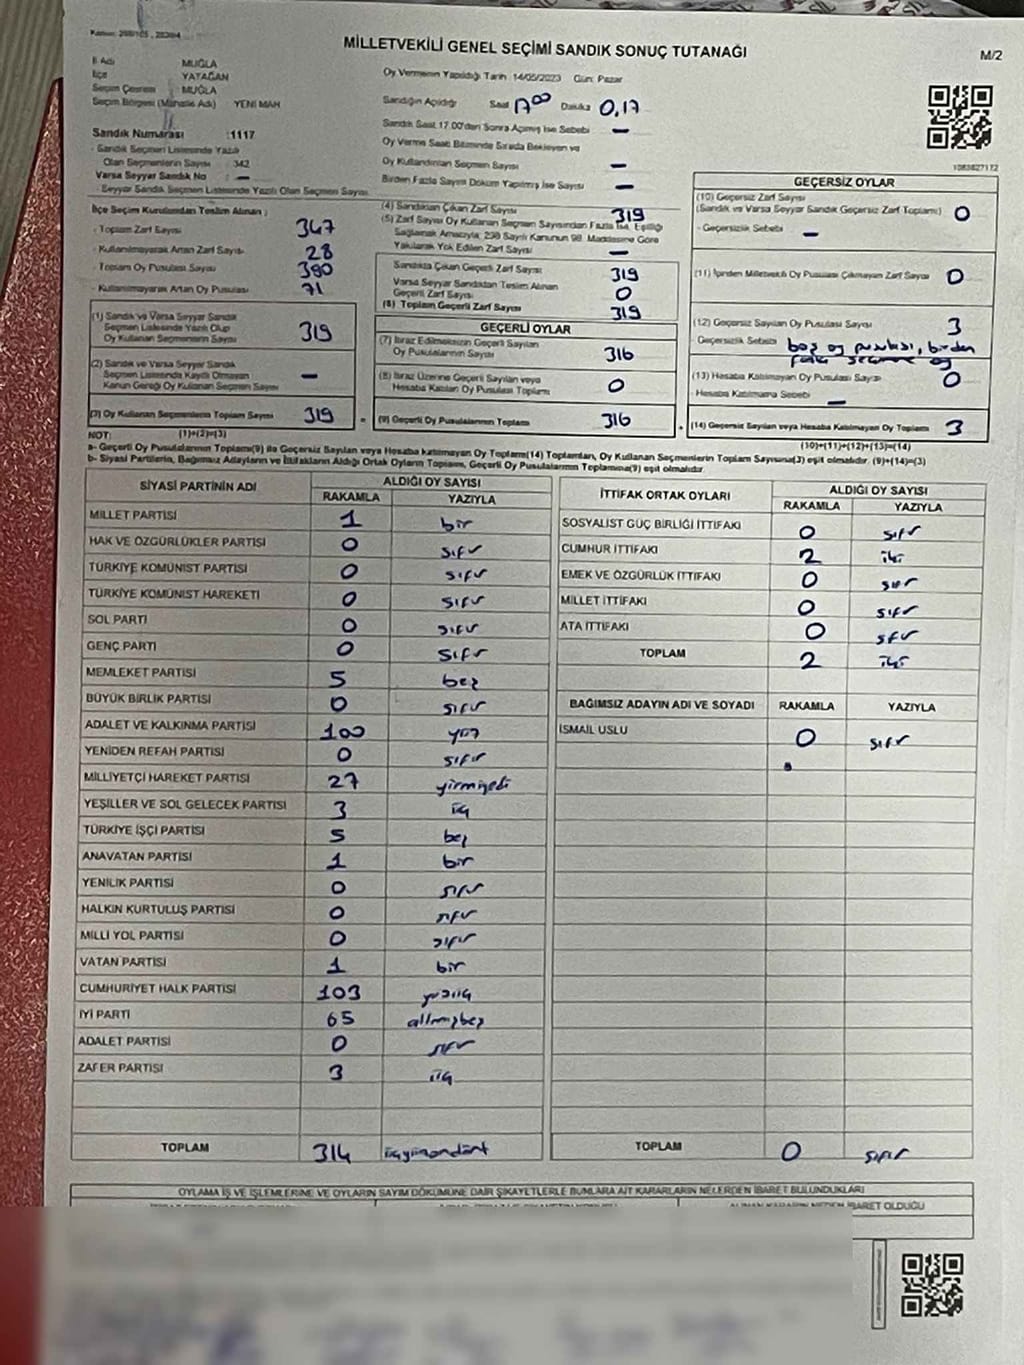 MİLLETVEKİLİ GENEL SEÇİMİ SANDIK SONUÇ TUTANAĞI
M/2
İl Adı MUĞLA
İlçe YATAĞAN
Seçim Çevresi MUĞLA
Seçim Bölgesi (Mahalle Adı) YENİ MAH
Sandık Numarası :1117
Sandık Seçmen Listesinde Yazılı
Olan Seçmenlerin Sayısı : 342
Varsa Seyyar Sandık No : –
Seyyar Sandık Seçmen Listesinde Yazılı Olan Seçmen Sayısı
Oy Vermenin Yapıldığı Tarih 14/05/2023 Gün: Pazar
Sandığın Açıldığı Saat 17 00 Dakika 0,17
Sandık Saat 17.00'den Sonra Açılmış İse Sebebi –
Oy Verme Saati Bitiminde Sırada Bekleyen ve
Oy Kullandırılan Seçmen Sayısı –
Birden Fazla Sayım Döküm Yapılmış İse Sayısı –
1083827172
İlçe Seçim Kurulundan Teslim Alınan :
- Toplam Zarf Sayısı 347
- Kullanılmayarak Artan Zarf Sayısı 28
- Toplam Oy Pusulası Sayısı 390
- Kullanılmayarak Artan Oy Pusulası 71
(1) Sandık ve Varsa Seyyar Sandık
Seçmen Listesinde Yazılı Olup
Oy Kullanan Seçmenlerin Sayısı 319
(2) Sandık ve Varsa Seyyar Sandık
Seçmen Listesinde Kayıtlı Olmayan
Kanun Gereği Oy Kullanan Seçmen Sayısı –
(3) Oy Kullanan Seçmenlerin Toplam Sayısı 319
(1)+(2)=(3)
(4) Sandıktan Çıkan Zarf Sayısı 319
(5) Zarf Sayısı Oy Kullanan Seçmen Sayısından Fazla İse, Eşitliği
Sağlamak Amacıyla, 298 Sayılı Kanunun 98. Maddesine Göre
Yakılarak Yok Edilen Zarf Sayısı –
Sandıkta Çıkan Geçerli Zarf Sayısı 319
Varsa Seyyar Sandıktan Teslim Alınan
Geçerli Zarf Sayısı 0
(6) Toplam Geçerli Zarf Sayısı 319
GEÇERLİ OYLAR
(7) İtiraz Edilmeksizin Geçerli Sayılan
Oy Pusulalarının Sayısı 316
(8) İtiraz Üzerine Geçerli Sayılan veya
Hesaba Katılan Oy Pusulaları Toplamı 0
(9) Geçerli Oy Pusulalarının Toplamı 316
GEÇERSİZ OYLAR
(10) Geçersiz Zarf Sayısı
(Sandık ve Varsa Seyyar Sandık Geçersiz Zarf Toplamı) 0
- Geçersizlik Sebebi –
(11) İçinden Milletvekili Oy Pusulası Çıkmayan Zarf Sayısı 0
(12) Geçersiz Sayılan Oy Pusulası Sayısı 3
Geçersizlik Sebebi boş oy pusulası, birden
fazla seçime oy
(13) Hesaba Katılmayan Oy Pusulası Sayısı 0
- Hesaba Katılmama Sebebi –
(14) Geçersiz Sayılan veya Hesaba Katılmayan Oy Toplamı 3
(10)+(11)+(12)+(13)=(14)
NOT:
a- Geçerli Oy Pusulalarının Toplamı(9) ile Geçersiz Sayılan veya Hesaba katılmayan Oy Toplamı(14) Toplamları, Oy Kullanan Seçmenlerin Toplam Sayısına(3) eşit olmalıdır. (9)+(14)=(3)
b- Siyasi Partilerin, Bağımsız Adayların ve İttifakların Aldığı Ortak Oyların Toplamı, Geçerli Oy Pusulalarının Toplamına(9) eşit olmalıdır.
SİYASİ PARTİNİN ADI ALDIĞI OY SAYISI
RAKAMLA YAZIYLA
MİLLET PARTİSİ 1 bir
HAK VE ÖZGÜRLÜKLER PARTİSİ 0 sıfır
TÜRKİYE KOMÜNİST PARTİSİ 0 sıfır
TÜRKİYE KOMÜNİST HAREKETİ 0 sıfır
SOL PARTİ 0 sıfır
GENÇ PARTİ 0 sıfır
MEMLEKET PARTİSİ 5 beş
BÜYÜK BİRLİK PARTİSİ 0 sıfır
ADALET VE KALKINMA PARTİSİ 100 yüz
YENİDEN REFAH PARTİSİ 0 sıfır
MİLLİYETÇİ HAREKET PARTİSİ 27 yirmiyedi
YEŞİLLER VE SOL GELECEK PARTİSİ 3 üç
TÜRKİYE İŞÇİ PARTİSİ 5 beş
ANAVATAN PARTİSİ 1 bir
YENİLİK PARTİSİ 0 sıfır
HALKIN KURTULUŞ PARTİSİ 0 sıfır
MİLLİ YOL PARTİSİ 0 sıfır
VATAN PARTİSİ 1 bir
CUMHURİYET HALK PARTİSİ 103 yüzüç
İYİ PARTİ 65 altmışbeş
ADALET PARTİSİ 0 sıfır
ZAFER PARTİSİ 3 üç
TOPLAM 314 üçyüzondört
İTTİFAK ORTAK OYLARI ALDIĞI OY SAYISI
RAKAMLA YAZIYLA
SOSYALİST GÜÇ BİRLİĞİ İTTİFAKI 0 sıfır
CUMHUR İTTİFAKI 2 iki
EMEK VE ÖZGÜRLÜK İTTİFAKI 0 sıfır
MİLLET İTTİFAKI 0 sıfır
ATA İTTİFAKI 0 sıfır
TOPLAM 2 iki
BAĞIMSIZ ADAYIN ADI VE SOYADI RAKAMLA YAZIYLA
İSMAİL USLU 0 sıfır
TOPLAM 0 sıfır
OYLAMA İŞ VE İŞLEMLERİNE VE OYLARIN SAYIM DÖKÜMÜNE DAİR ŞİKAYETLERLE BUNLARA AİT KARARLARIN NELERDEN İBARET BULUNDUKLARI